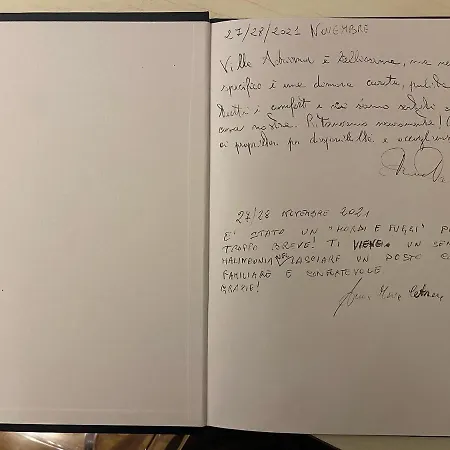 27/28/2021 NOVEMBRE
Villa Adriana è bellissima, ma nello
specifico è una dimora curata, pulita
i comfort e ci siamo sentiti a
casa nostra. Ritorneremo nuovamente!
ai proprietari per disponibilità e accoglienza
27/28 NOVEMBRE 2021
E' STATO UN "MORDI E FUGGI" PU
TROPPO BREVE! TI VIENE UN SEN
MALINCONIA NEL LASCIARE UN POSTO CO
FAMILIARE E CONFORTEVOLE
GRAZIE!